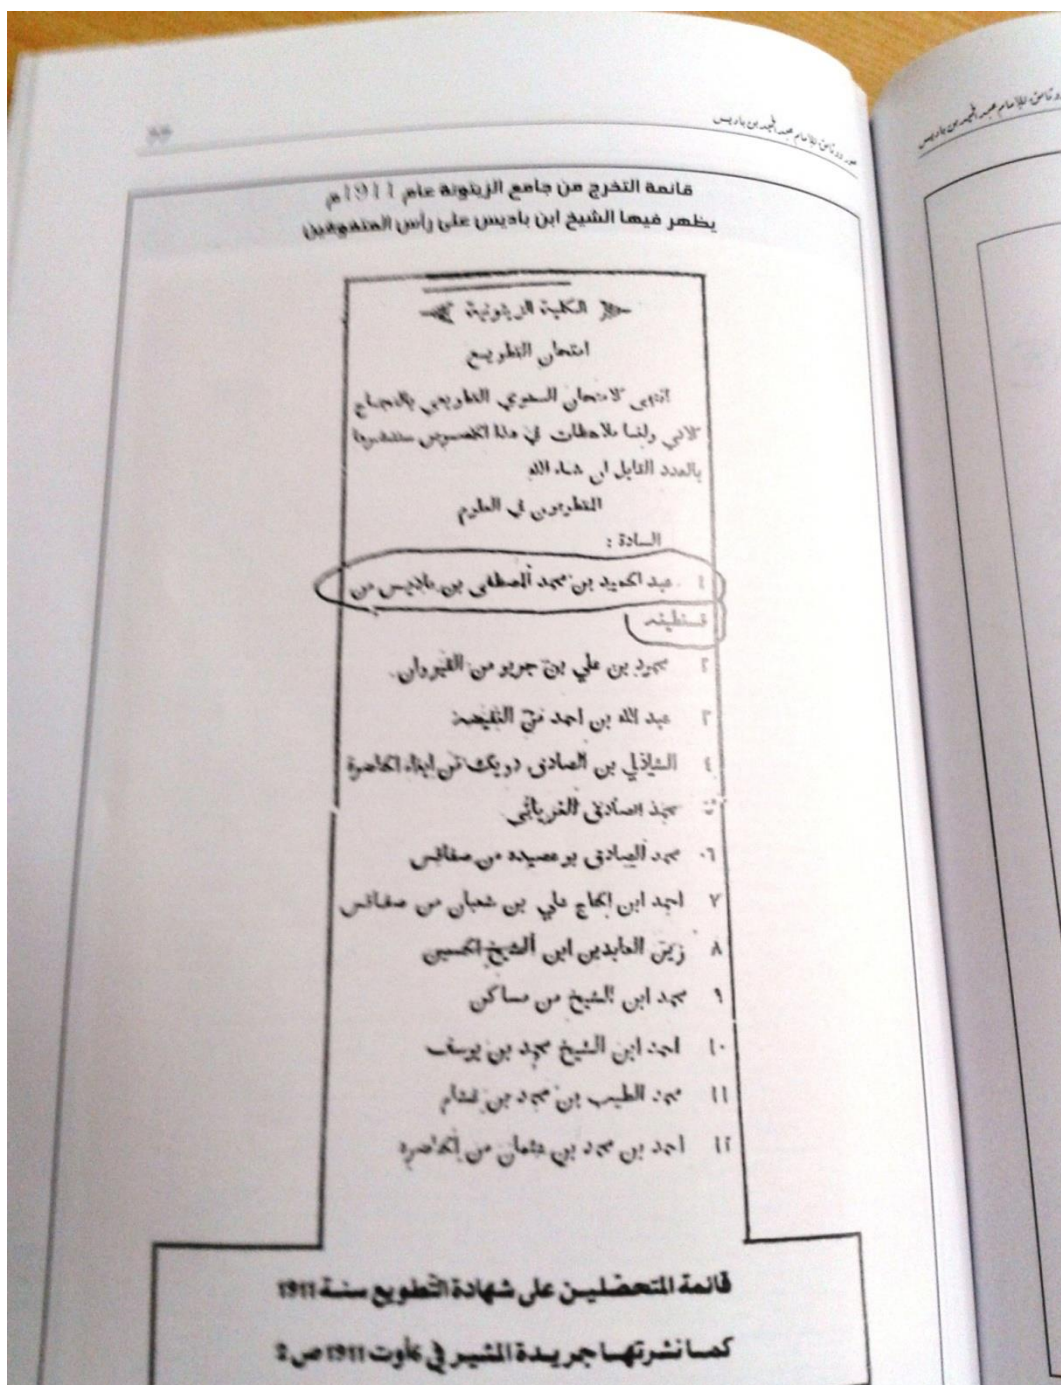 صور ووثائق للإمام عبد الحميد بن باديس
ووثائق للإمام عبد الحميد بن باديس
قائمة التخرج من جامع الزيتونة عام 1911م
يظهر فيها الشيخ ابن باديس على رأس المتفوقين
الكلية الزيتونية
امتحان التطويع
انتهى كلامتحان السنوي التطويعي بالنجاح
كلاتي ولنا ملاحظات في هذا الخصوص سننشرها
بالعدد القابل ان شاء الله
المتطوعون في العلوم
السادة :
١ عبد الحميد بن محمد المصطفى بن باديس من
قسنطينه
٢ محمود بن علي بن جريو من القيروان
٣ عبد الله بن احمد من النفيضة
٤ الشاذلي بن الصادق دويك من ابناء الحاضرة
٥ محمد الصادق الغرياني
٦ محمد الصادق بو عصيده من صفاقس
٧ احمد ابن الحاج علي بن شعبان من صفاقس
٨ زين العابدين ابن الشيخ الحسين
٩ محمد ابن الشيخ من مساكن
١٠ احمد ابن الشيخ محمد بن يوسف
١١ محمد الطيب بن محمد بن
١٢ احمد بن محمد بن عثمان من الحاضره
قائمة المتحصّلين على شهادة التّطويع سنة 1911
كما نشرتها جريدة المشير في أوت 1911 ص 2